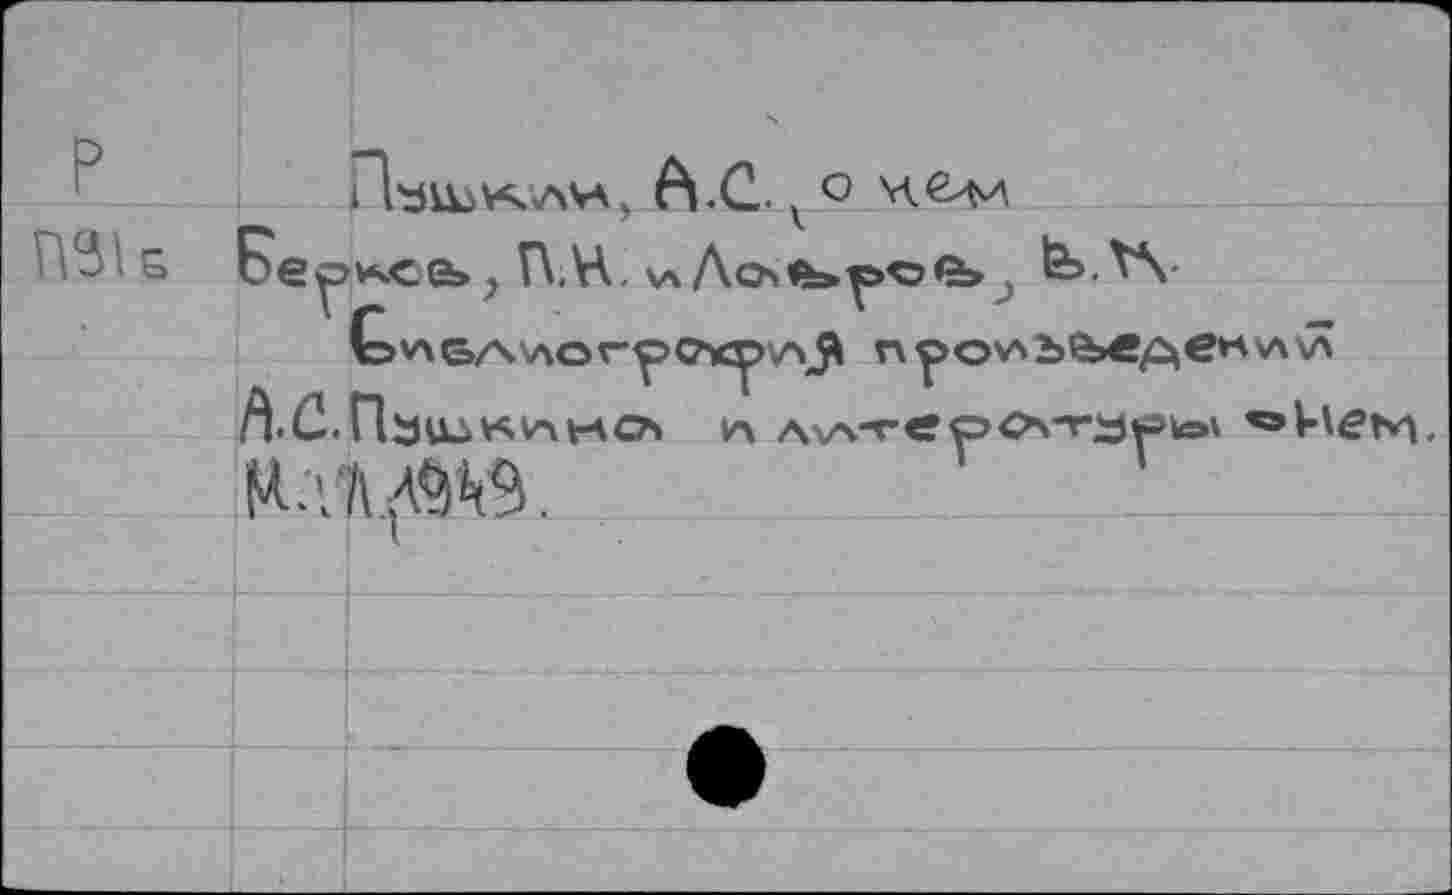 Р
Пушкин, А.С., о нем
П91Б Берков, П.Н. и Лавров, В.М.
Библиография произведений
А.С.Пушкина и литературы о Нем.
М.;Л.,1949.